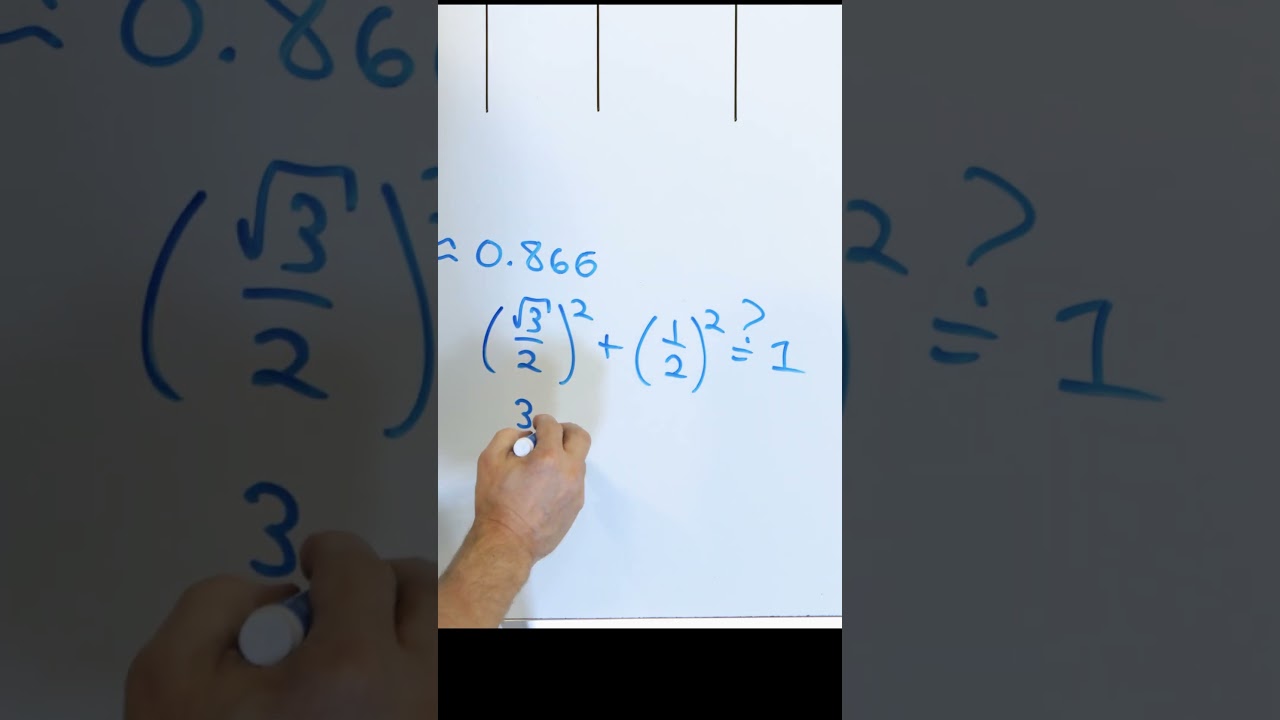 ≈ 0.866
(√3/2)² + (1/2)² ≟ 1
3